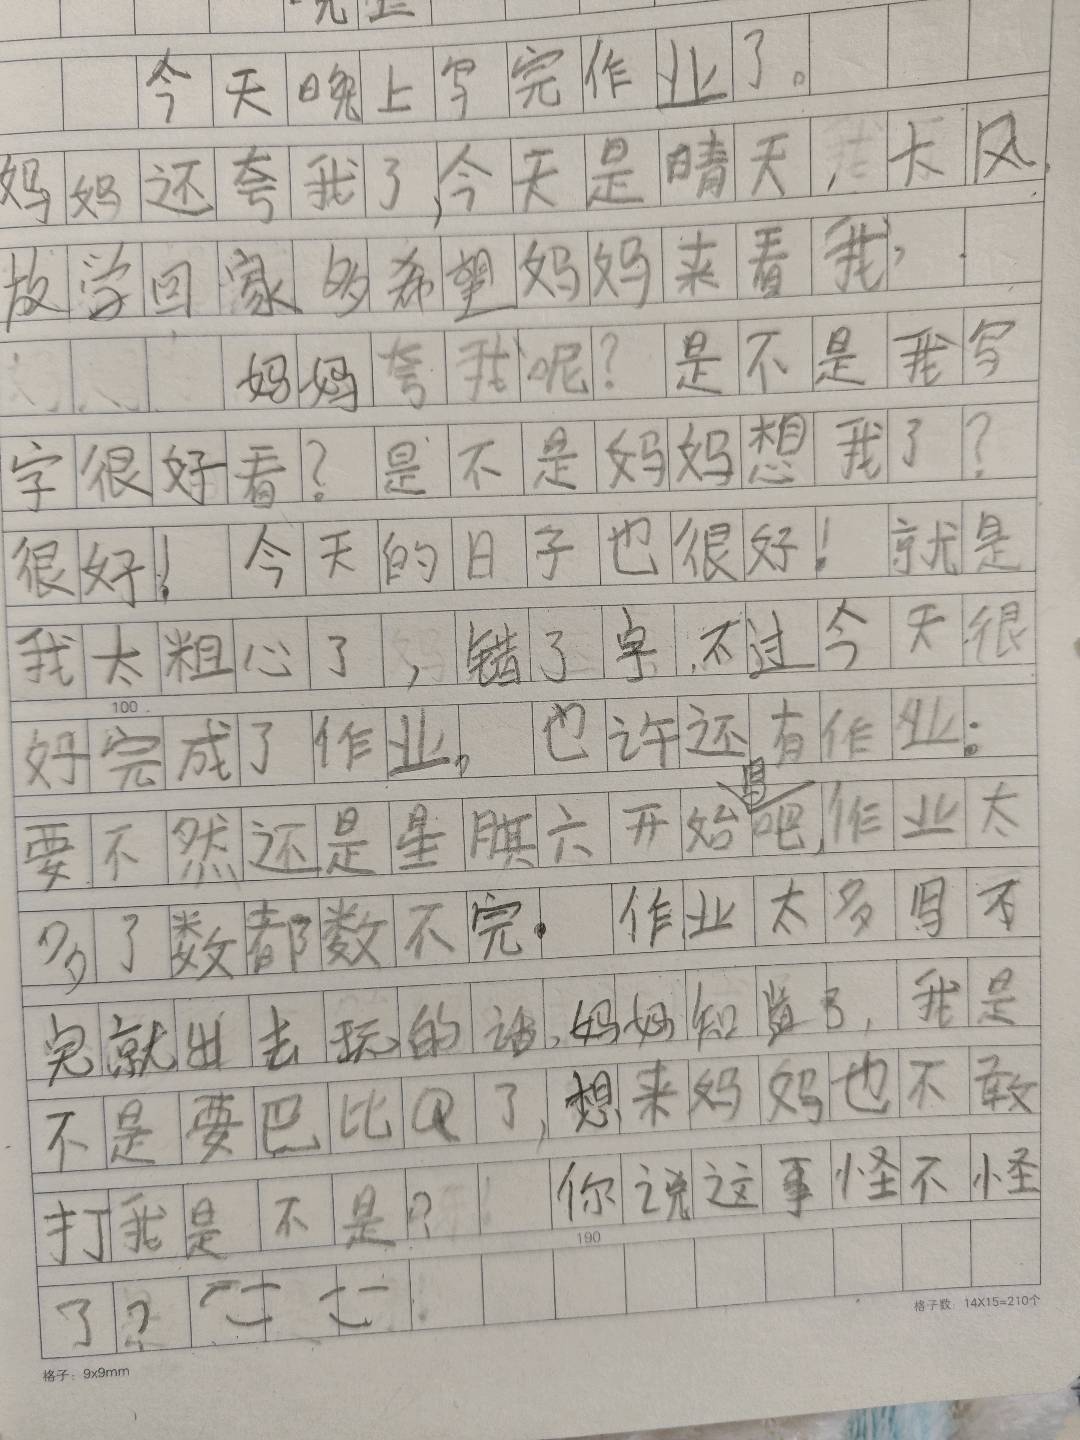 晚上
今天晚上写完作业了。
妈妈还夸我了,今天是晴天,大风,
放学回家多希望妈妈来看我,
妈妈夸我呢?是不是我写
字很好看?是不是妈妈想我了?
很好!今天的日子也很好!就是
我太粗心了,错了字,不过今天很
好完成了作业。也许还有作业:
要不然还是星期六开始写吧,作业太
多了数都数不完.作业太多写不
完就出去玩的话,妈妈知道了,我是
不是要巴比Q了,想来妈妈也不敢
打我是不是?你说这事怪不怪
190
了?
100
格子数:14X15=210个
格子:9x9mm